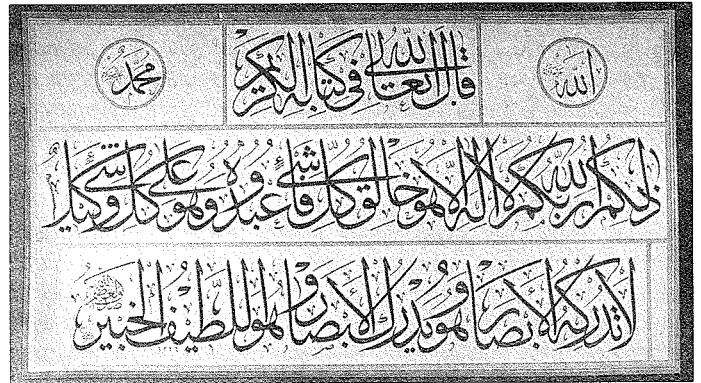 الله
قال الله تعالى في كتابه الكريم
محمد
ذلكم الله ربكم لا اله الا هو خالق كل شئ فاعبدوه وهو على كل شئ وكيل
لا تدركه الابصار وهو يدرك الابصار وهو اللطيف الخبير